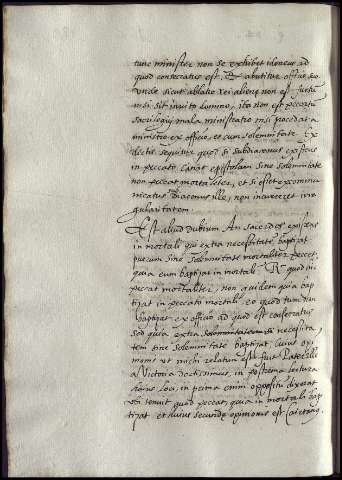 tunc minister non se exhibet idoneus ad
quod consecratus est. Et abutitur officio suo
unde sicut ablatio rei alienę non est furtum
nisi sit invito domino, ita non est peccatum
sacrilegii mala ministratio nisi procedat a
ministro ex officio, et cum solemnitate. Ex
dictis sequitur quod si subdiaconus existens
in peccato canat epistolam sine solemnitate
non peccat mortaliter, et si esset excommu
nicatus diaconus ille, non incurreret irre
gularitatem.
Est aliud dubium An sacerdos existens
in mortali qui extra necessitatem baptizat
puerum sine solemnitate mortaliter peccet,
quia eum baptizat in mortali. Rr quod ni
peccat mortaliter, non quidem quia bap
tizat in peccato mortali, eo quod tum non
baptizat ex officio ad quod est consecratus
sed quia extra necessita,
tem sine solemnitate baptizat. huius opi
nionis ut michi relatum est fuit Pater
a Victoria doctissimus, in postrema lectura
huius loci, in prima enim oppositum dixerat
ubi tenuit quod peccat, quia in mortali bap
tizat, et huius secundę opinionis est Caietanus.